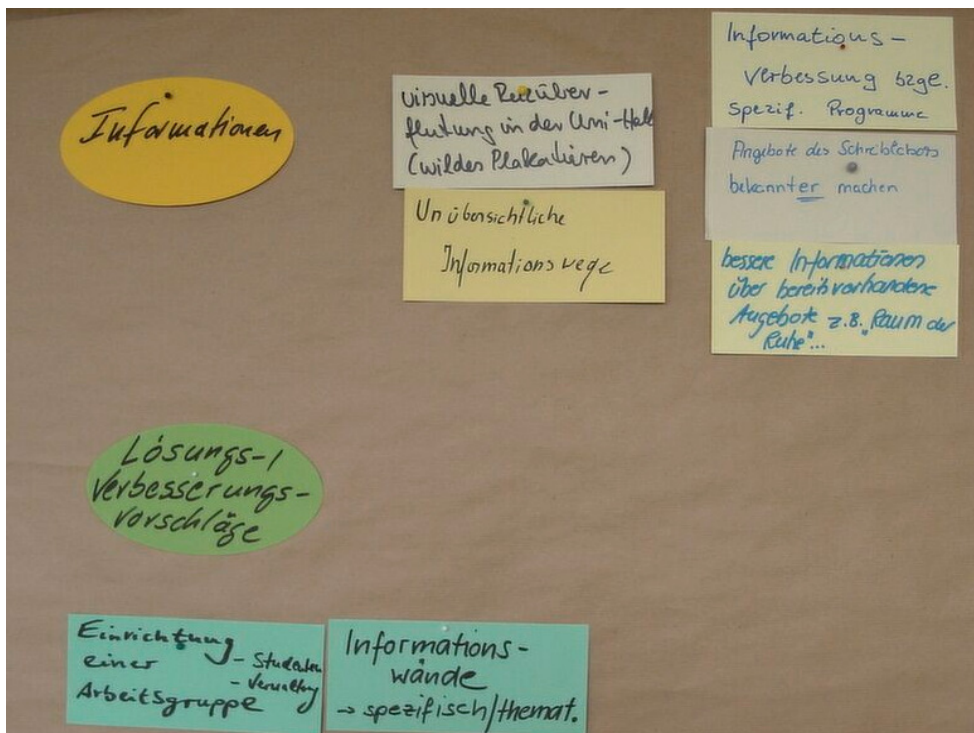 Informationen
visuelle Reizüber-
flutung in der Uni-Halle
(wildes Plakatieren)
Unübersichtliche
Informationswege
Informations-
verbessung bzge.
spezif. Programme
Angebote des Schreiblabors
bekannter machen
bessere Informationen
über bereits vorhandene
Angebote z.B. "Raum der
Ruhe"...
Lösungs-/
Verbesserungs-
vorschläge
Einrichtung
einer - Studenten
- Verwaltung
Arbeitsgruppe
Informations-
wände
→ spezifisch/themat.